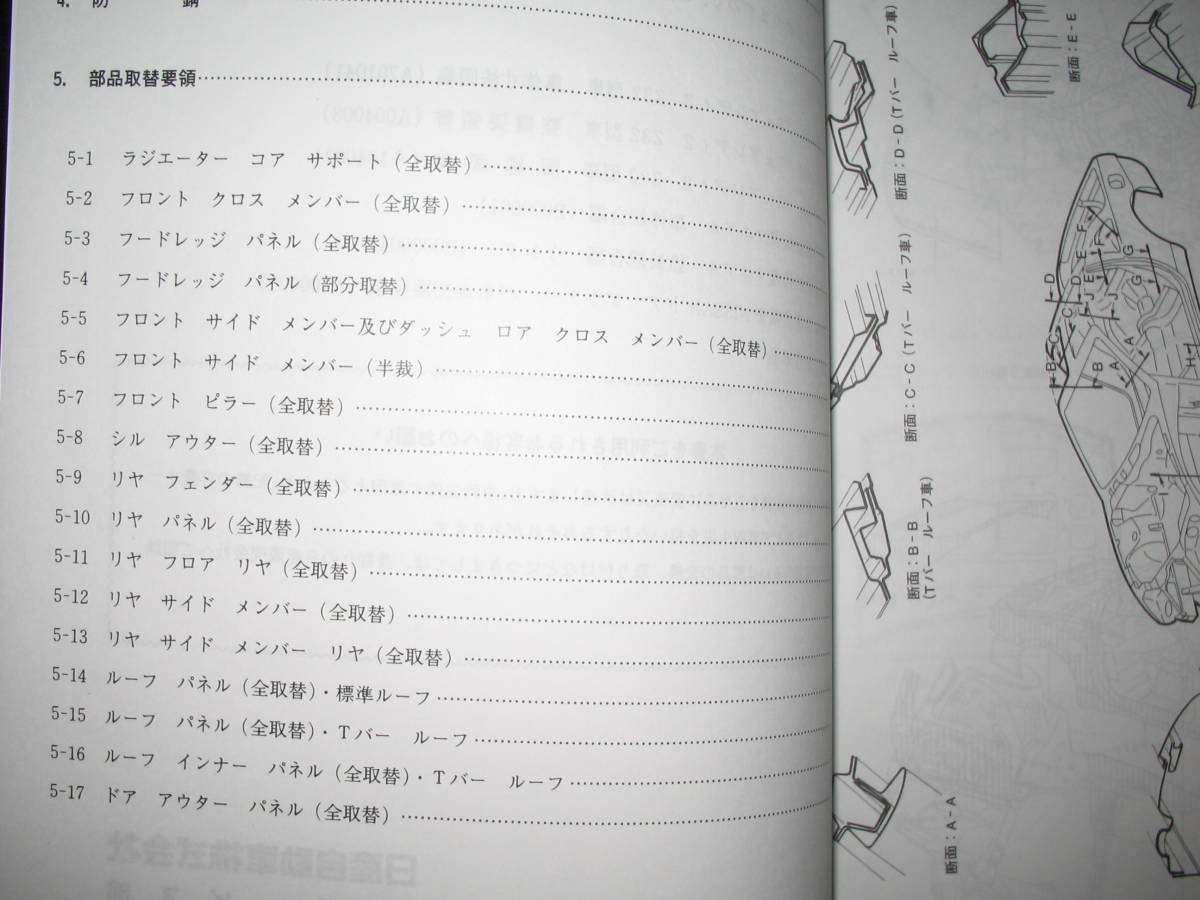 4. 防 錆
5. 部品取替要領
5-1 ラジエーター コア サポート(全取替)
5-2 フロント クロス メンバー(全取替)
5-3 フードレッジ パネル(全取替)
5-4 フードレッジ パネル(部分取替)
5-5 フロント サイド メンバー及びダッシュ ロア クロス メンバー(全取替)
5-6 フロント サイド メンバー(半裁)
5-7 フロント ピラー(全取替)
5-8 シル アウター(全取替)
5-9 リヤ フェンダー(全取替)
5-10 リヤ パネル(全取替)
5-11 リヤ フロア リヤ(全取替)
5-12 リヤ サイド メンバー(全取替)
5-13 リヤ サイド メンバー リヤ(全取替)
5-14 ルーフ パネル(全取替)・標準ルーフ
5-15 ルーフ パネル(全取替)・Tバー ルーフ
5-16 ルーフ インナー パネル(全取替)・Tバー ルーフ
5-17 ドア アウター パネル(全取替)
断面:E-E
断面:D-D(Tバー ルーフ車)
断面:C-C(Tバー ルーフ車)
断面:B-B
(Tバー ルーフ車)
断面:A-A
D
D
C
C
B
B
A
A
E
E
F
F
J
J
G
G
H
I